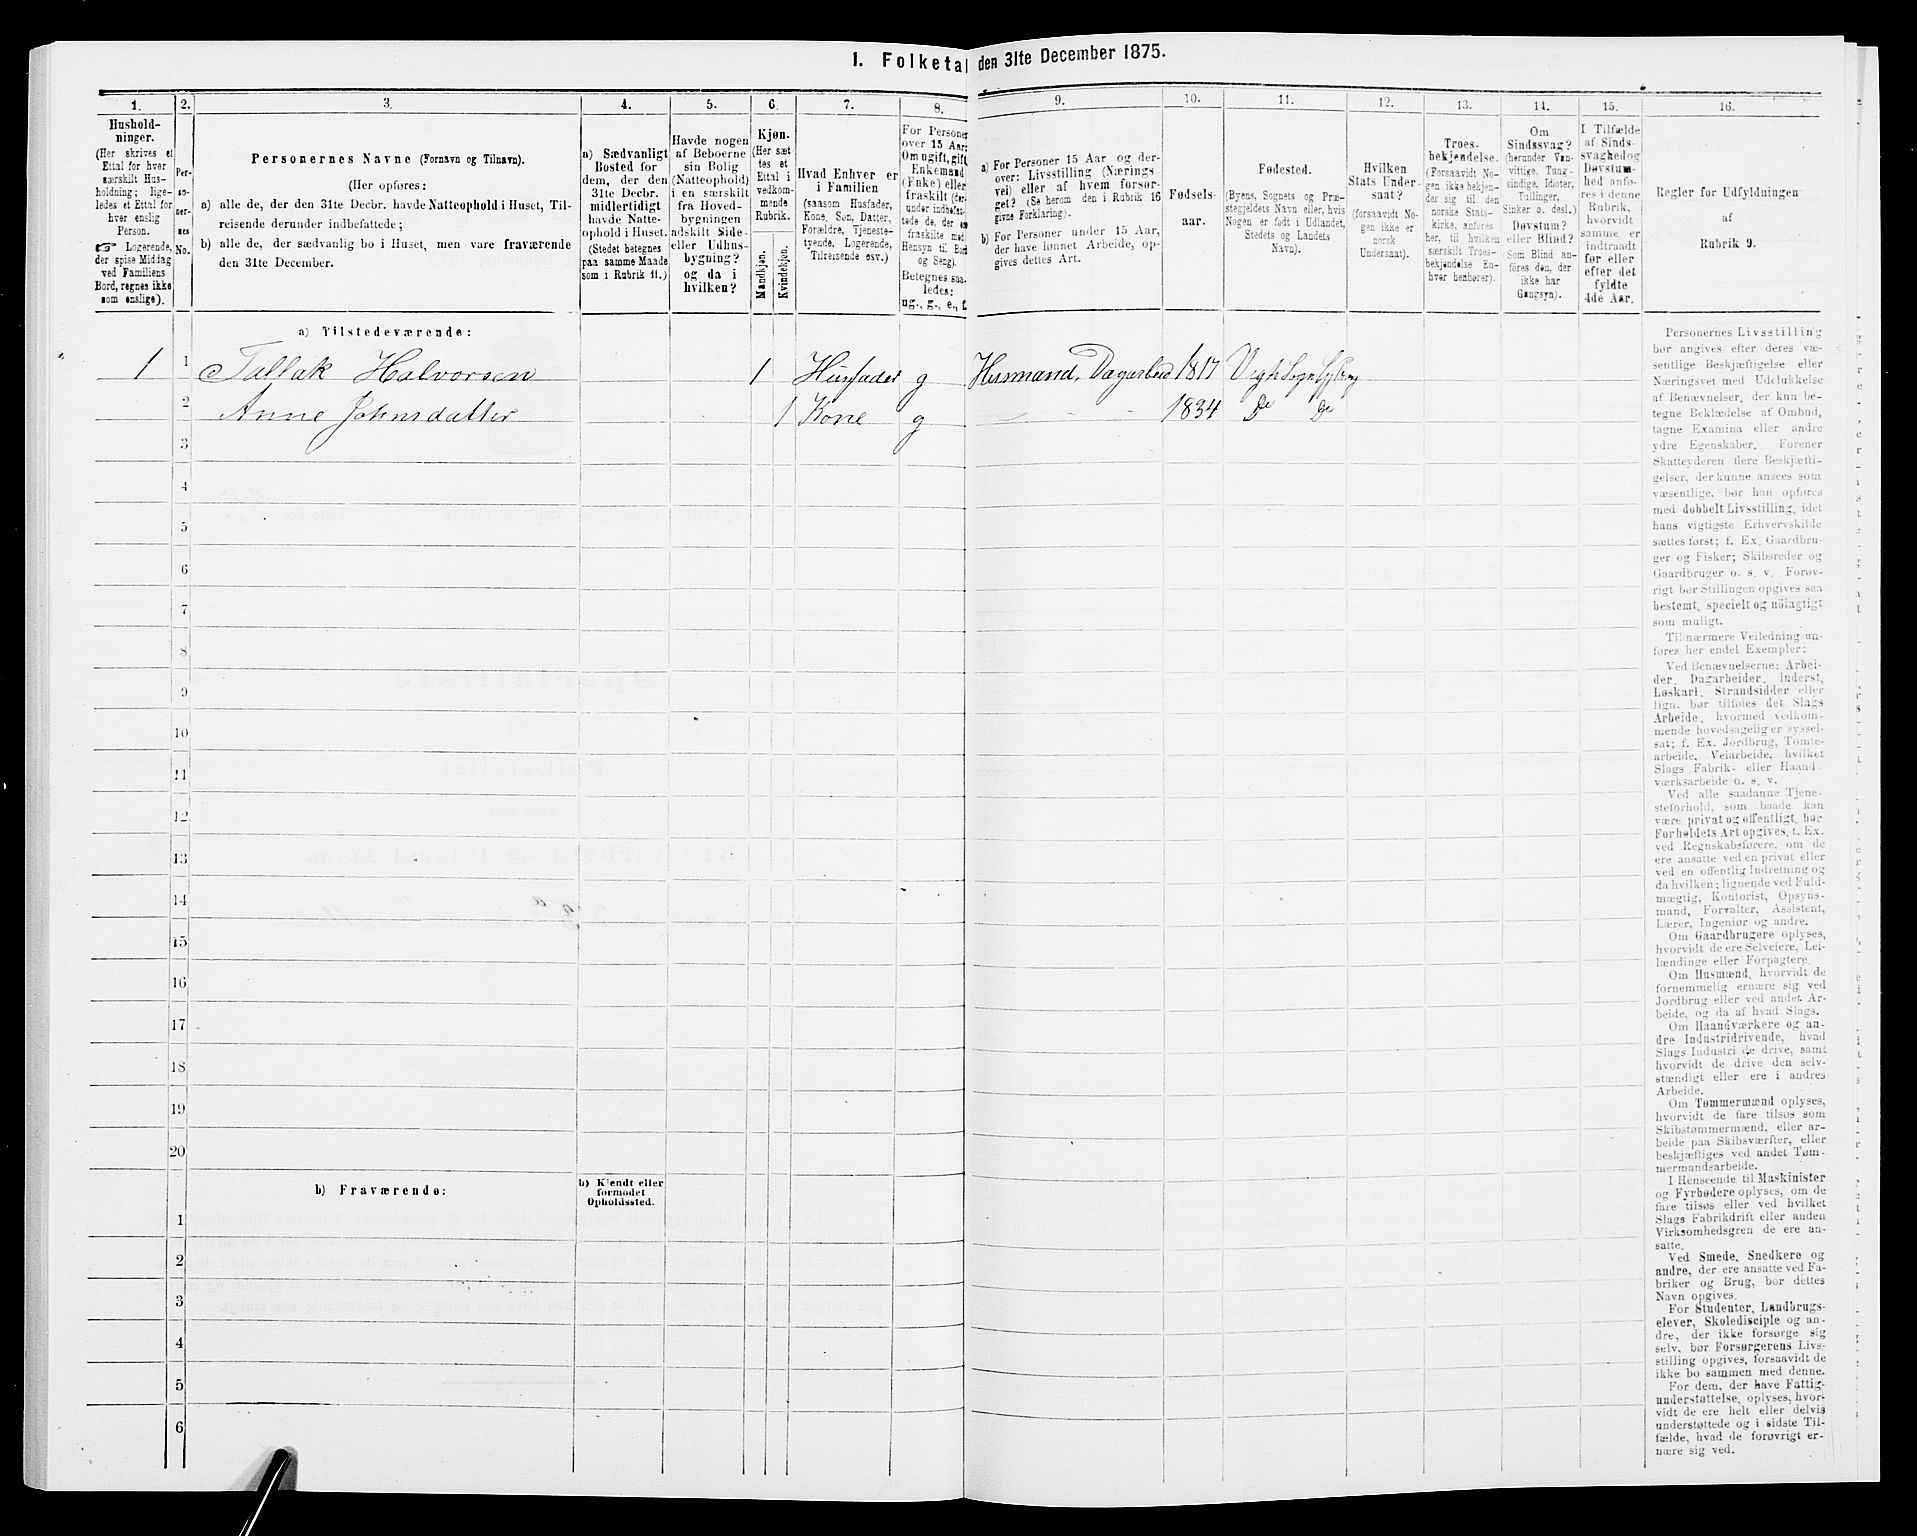 1. Folketal den 31te December 1875.
1. 2. 3. 4. 5. 6. 7. 8. 9. 10. 11. 12. 13. 14. 15. 16.
Hushold-
ninger.
(Her skrives et
Ettal for hver
særskilt Hus-
holdning; lige-
ledes et Ettal for
hver enslig
Person.
☞ Logerende,
der spise Middag
ved Familiens
Bord, regnes ikke
som enslige).
Per-
so-
ner-
nes
No.
Personernes Navne (Fornavn og Tilnavn).
(Her opføres:
a) alle de, der den 31te Decbr. havde Natteophold i Huset, Til-
reisende derunder indbefattede;
b) alle de, der sædvanlig bo i Huset, men vare fraværende
den 31te December.
a) Sædvanligt
Bosted for
dem, der den
31te Decbr.
midlertidigt
havde Natte-
ophold i Huset.
(Stedet betegnes
paa samme Maade
som i Rubrik 11.)
Havde nogen
af Beboerne
sin Bolig
(Natteophold)
i en særskilt
fra Hoved-
bygningen
adskilt Side-
eller Udhus-
bygning?
og da i
hvilken?
Kjøn.
(Her sæt-
tes et
Ettal i
vedkom-
mende
Rubrik.
Mandkjøn.
Kvindekjøn.
Hvad Enhver er
i Familien
(saasom Husfader,
Kone, Søn, Datter,
Forældre, Tjeneste-
tyende, Logerende,
Tilreisende osv.)
For Personer
over 15 Aar:
Om ugift, gift,
Enkemand
(Enke) eller
fraskilt (der-
under indbefat-
tede de, der ere
fraskilte med
Hensyn til Bord
og Seng).
Betegnes saa-
ledes:
ug., g., e., f.
a) For Personer 15 Aar og der-
over: Livsstilling (Nærings-
vei) eller af hvem forsør-
get? (Se herom den i Rubrik 16
givne Forklaring).
b) For Personer under 15 Aar,
der have lønnet Arbeide, op-
gives dettes Art.
Fødsels-
aar.
Fødested.
(Byens, Sognets og Præ-
stegjeldets Navn eller, hvis
Nogen er født i Udlandet,
Stedets og Landets
Navn).
Hvilken
Stats Under-
saat?
(forsaavidt No-
gen ikke er
norsk
Undersaat).
Troes-
bekjendelse.
(Forsaavidt No-
gen ikke bekjen-
der sig til den
norske Stats-
kirke, anføres
her, til hvilken
særskilt Troes-
bekjendelse En-
hver henhører).
Om
Sindssvag?
(herunder Van-
vittige, Tung-
sindige, Idioter,
Tullinger,
Sinker o. desl.)
Døvstum?
eller Blind?
(Som Blind an-
føres den, der
ikke har
Gangsyn).
I Tilfælde
af Sinds-
svaghed og
Døvstum-
hed anfø-
res i denne
Rubrik,
hvorvidt
samme er
indtraadt
før eller
efter det
fyldte
4de Aar.
Regler for Udfyldningen
af
Rubrik 9.
a) Tilstedeværende:
1 1 Tallak Halvorsen 1 Husfader g Husmand, Dagarbeid 1817 Sogn
2 Anne Johnsdatter 1 Kone g 1834 Do Do
3
4
5
6
7
8
9
10
11
12
13
14
15
16
17
18
19
20
b) Fraværende:
b) Kjendt eller
formodet
Opholdssted.
1
2
3
4
5
6
Personernes Livsstilling
bør angives efter deres væ-
sentlige Beskjæftigelse eller
Næringsvei med Udelukkelse
af Benævnelser, der kun be-
tegne Beklædelse af Ombud,
tagne Examina eller andre
ydre Egenskaber. Forener
Skatteyderen flere Beskjæfti-
gelser, der kunne ansees som
væsentlige, bør han opføres
med dobbelt Livsstilling, idet
hans vigtigste Erhvervskilde
sættes først; f. Ex. Gaardbru-
ger og Fisker; Skibsreder og
Gaardbruger o. s. v. Forøv-
rigt bør Stillingen opgives saa
bestemt, specielt og nöiagtigt
som muligt.
Til nærmere Veiledning an-
føres her endel Exempler:
Ved Benævnelserne: Arbei-
der, Dagarbeider, Inderst,
Løskarl, Strandsidder eller
lign. bør tilføies det Slags
Arbeide, hvormed vedkom-
mende hovedsagelig er syssel-
sat; f. Ex. Jordbrug, Tomte-
arbeide, Veiarbeide, hvilket
Slags Fabrik- eller Haand-
værksarbeide o. s. v.
Ved alle saadanne Tjene-
steforhold, som baade kan
være privat og offentligt, bør
Forholdets Art opgives, t. Ex.
ved Regnskabsførere, om de
ere ansatte ved en privat eller
ved en offentlig Indretning og
da hvilken; lignende ved Fuld-
mægtig, Kontorist, Opsyns-
mand, Forvalter, Assistent,
Lærer, Ingeniør og andre.
Om Gaardbrugere oplyses,
hvorvidt de ere Selveiere, Lei-
lændinge eller Forpagtere.
Om Husmænd, hvorvidt de
fornemmelig ernære sig ved
Jordbrug eller ved andet Ar-
beide, og da af hvad Slags.
Om Haandværkere og an-
dre Industridrivende, hvad
Slags Industri de drive, samt
hvorvidt de drive den selv-
stændigt eller ere i andres
Arbeide.
Om Tømmermænd oplyses,
hvorvidt de fare tilsøs som
Skibstømmermænd, eller ar-
beide paa Skibsværfter, eller
beskjæftiges ved andet Tøm-
mermandsarbeide.
I Henseende til Maskinister
og Fyrbødere oplyses, om de
fare tilsøs eller ved hvilket
Slags Fabrikdrift eller anden
Virksomhedsgren de ere an-
satte.
Ved Smede, Snedkere og
andre, der ere ansatte ved Fa-
briker og Brug, bør dettes
Navn opgives.
For Studenter, Landbrugs-
elever, Skoledisciple og an-
dre, der ikke forsørge sig
selv, bør Forsørgerens Livs-
stilling opgives, forsaavidt de
ikke bo sammen med denne.
For dem, der have Fattig-
understøttelse, oplyses, hvor-
vidt de ere helt eller delvis
understøttede og i sidste Til-
fælde, hvad de forøvrigt er-
nære sig ved.